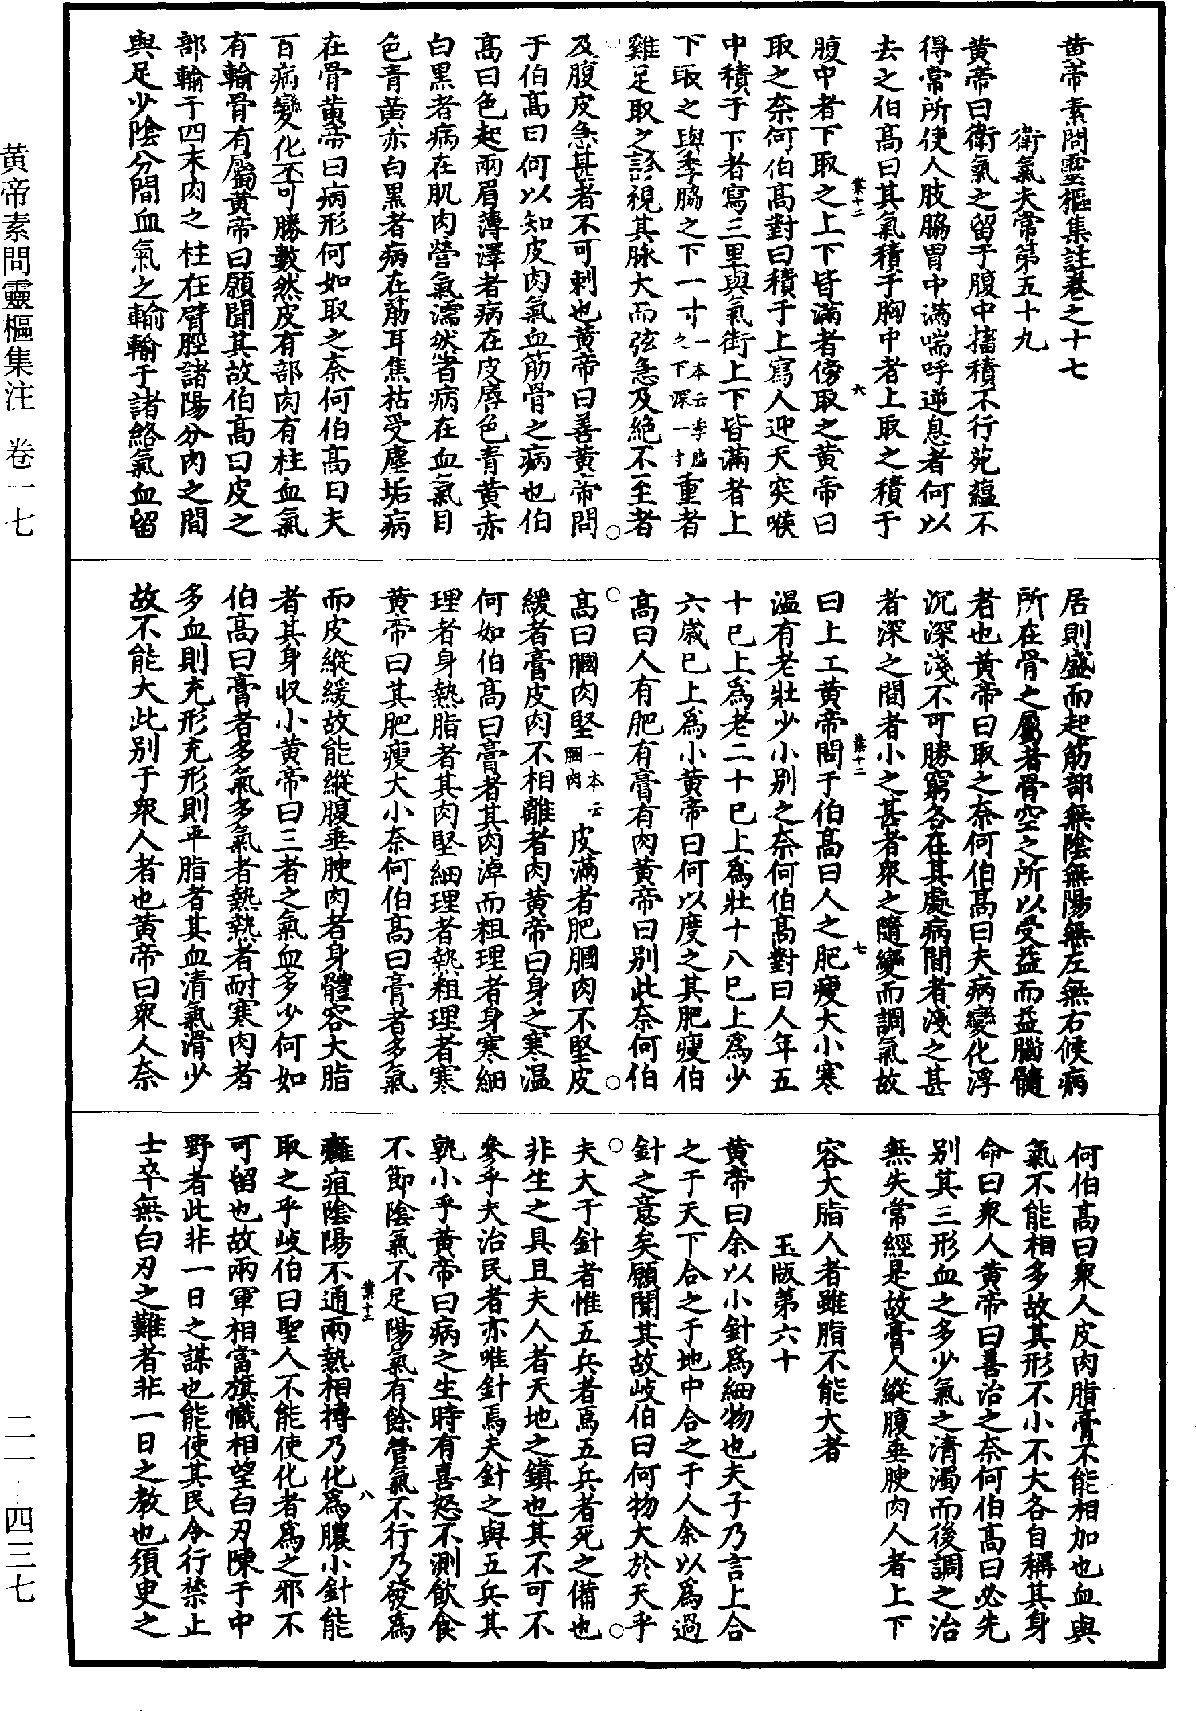 黄帝素問靈樞集註卷之十七
衛氣失常第五十九
黄帝曰衛氣之留于腹中搐積不行菀蘊不
得常所使人肢脇胃中滿喘呼逆息者何以
去之伯髙曰其氣積于胸中者上取之積于
腹中者下取之上下皆滿者傍取之黄帝曰
取之奈何伯髙對曰積于上寫人迎天突喉
中積于下者寫三里與氣街上下皆滿者上
下取之與季脇之下一寸一本云季脇之下深一寸重者
雞足取之診視其脉大而弦急及絶不至者
及腹皮急甚者不可刺也黄帝曰善黄帝問
于伯髙曰何以知皮肉氣血筋骨之病也伯
髙曰色起兩眉薄澤者病在皮唇色青黄赤
白黒者病在肌肉營氣濡然者病在血氣目
色青黄赤白黒者病在筋耳焦枯受塵垢病
在骨黄帝曰病形何如取之奈何伯髙曰夫
百病變化不可勝數然皮有部肉有柱血氣
有輸骨有屬黄帝曰願聞其故伯髙曰皮之
部輸于四末肉之柱在臂脛諸陽分肉之間
與足少陰分間血氣之輸輸于諸絡氣血留
居則盛而起筋部無陰無陽無左無右候病
所在骨之屬者骨空之所以受益而益腦髓
者也黄帝曰取之奈何伯髙曰夫病變化浮
沉深淺不可勝窮各在其處病間者淺之甚
者深之間者小之甚者衆之隨變而調氣故
曰上工黄帝問于伯髙曰人之肥瘦大小寒
温有老壯少小别之奈何伯髙對曰人年五
十已上爲老二十已上爲壯十八已上爲少
六歲已上爲小黄帝曰何以度之其肥瘦伯
髙曰人有肥有膏有肉黄帝曰别此奈何伯
髙曰膕肉堅一本云膕肉皮滿者肥膕肉不堅皮
緩者膏皮肉不相離者肉黄帝曰身之寒温
何如伯髙曰膏者其肉淖而粗理者身寒細
理者身熱脂者其肉堅細理者熱粗理者寒
黄帝曰其肥瘦大小奈何伯髙曰膏者多氣
而皮縱緩故能縱腹垂腴肉者身體容大脂
者其身収小黄帝曰三者之氣血多少何如
伯髙曰膏者多氣多氣者熱熱者耐寒肉者
多血則充形充形則平脂者其血清氣滑少
故不能大此别于衆人者也黄帝曰衆人奈
何伯髙曰衆人皮肉脂膏不能相加也血與
氣不能相多故其形不小不大各自稱其身
命曰衆人黄帝曰善治之奈何伯髙曰必先
别其三形血之多少氣之清濁而後調之治
無失常經是故膏人縱腹垂腴肉人者上下
容大脂人者雖脂不能大者
玉版第六十
黄帝曰余以小針爲細物也夫子乃言上合
之于天下合之于地中合之于人余以爲過
針之意矣願聞其故岐伯曰何物大於天乎
夫大于針者惟五兵者焉五兵者死之備也
非生之具且夫人者天地之鎮也其不可不
參乎夫治民者亦唯針焉夫針之與五兵其
孰小乎黄帝曰病之生時有喜怒不測飲食
不節陰氣不足陽氣有餘營氣不行乃發爲
癰疽陰陽不通兩熱相搏乃化爲膿小針能
取之乎岐伯曰聖人不能使化者爲之邪不
可留也故兩軍相當旗幟相望白刃陳于中
野者此非一日之謀也能使其民令行禁止
士卒無白刃之難者非一日之教也須臾之
黄帝素問靈樞集注 卷一七
二一 四三七